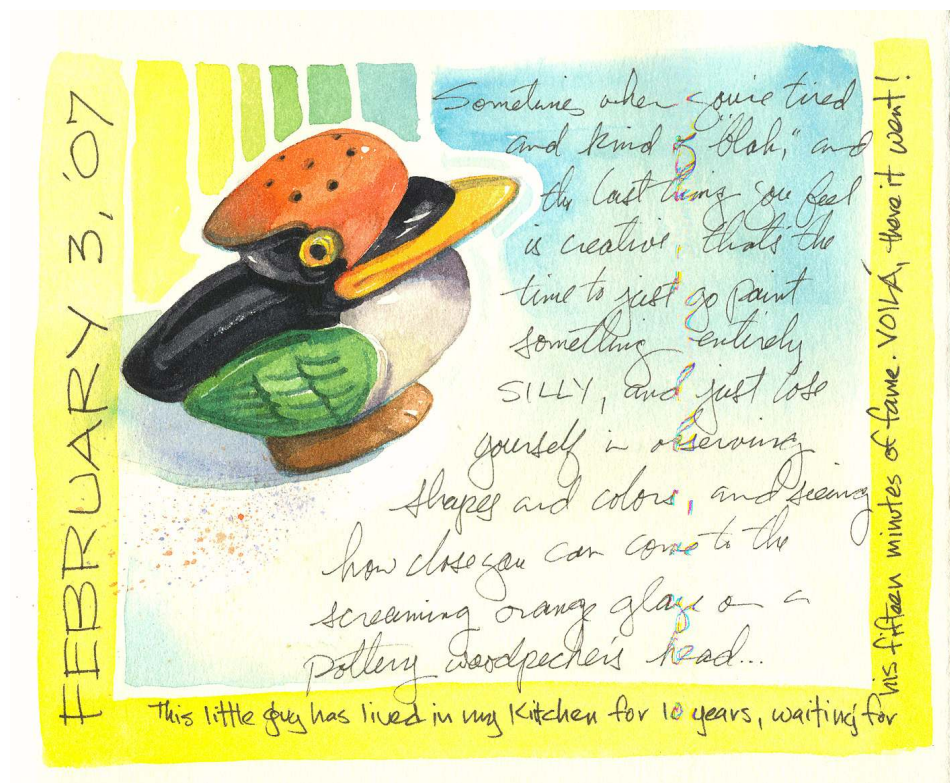 FEBRUARY 3, '07
Sometimes when you're tired
and kind of "blah," and
the last thing you feel
is creative, that's the
time to just go paint
something entirely
SILLY, and just lose
yourself in observing
shapes and colors, and seeing
how close you can come to the
screaming orange glaze on a
pottery woodpecker's head...
This little guy has lived in my kitchen for 10 years, waiting for
his fifteen minutes of fame. VOILÁ, there it went!